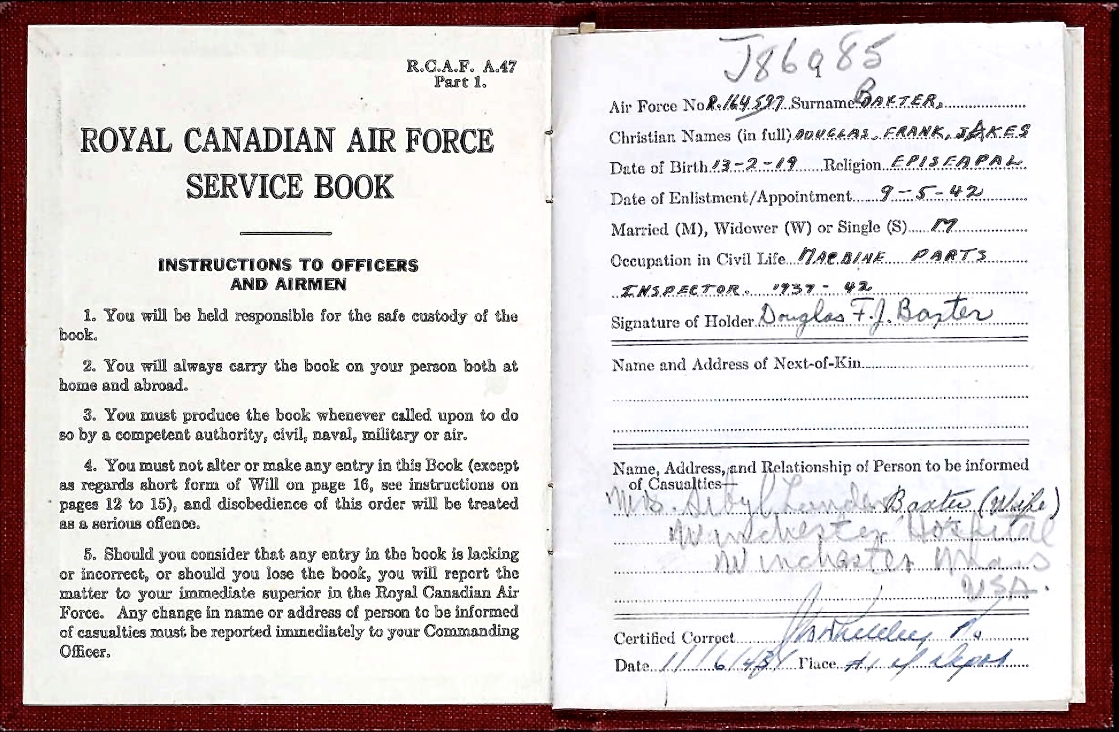 R.C.A.F. A.47
Part 1.
ROYAL CANADIAN AIR FORCE
SERVICE BOOK
INSTRUCTIONS TO OFFICERS
AND AIRMEN
1. You will be held responsible for the safe custody of the
book.
2. You will always carry the book on your person both at
home and abroad.
3. You must produce the book whenever called upon to do
so by a competent authority, civil, naval, military or air.
4. You must not alter or make any entry in this Book (except
as regards short form of Will on page 16, see instructions on
pages 12 to 15), and disobedience of this order will be treated
as a serious offence.
5. Should you consider that any entry in the book is lacking
or incorrect, or should you lose the book, you will report the
matter to your immediate superior in the Royal Canadian Air
Force. Any change in name or address of person to be informed
of casualties must be reported immediately to your Commanding
Officer.
J86985
Air Force No. R.164597 Surname BAXTER,
Christian Names (in full) DOUGLAS, FRANK, JAKES
Date of Birth 13-2-19 Religion EPISCAPAL
Date of Enlistment/Appointment 9-5-42
Married (M), Widower (W) or Single (S) M
Occupation in Civil Life MACHINE PARTS
INSPECTOR. 1937-42
Signature of Holder Douglas F.J. Baxter
Name and Address of Next-of-Kin
Name, Address, and Relationship of Person to be informed
of Casualties—
Mrs. Sibyl Baxter (Wife)
Winchester Hospital
Winchester Mass
USA.
Certified Correct
Date 11/6/43 Place Depot